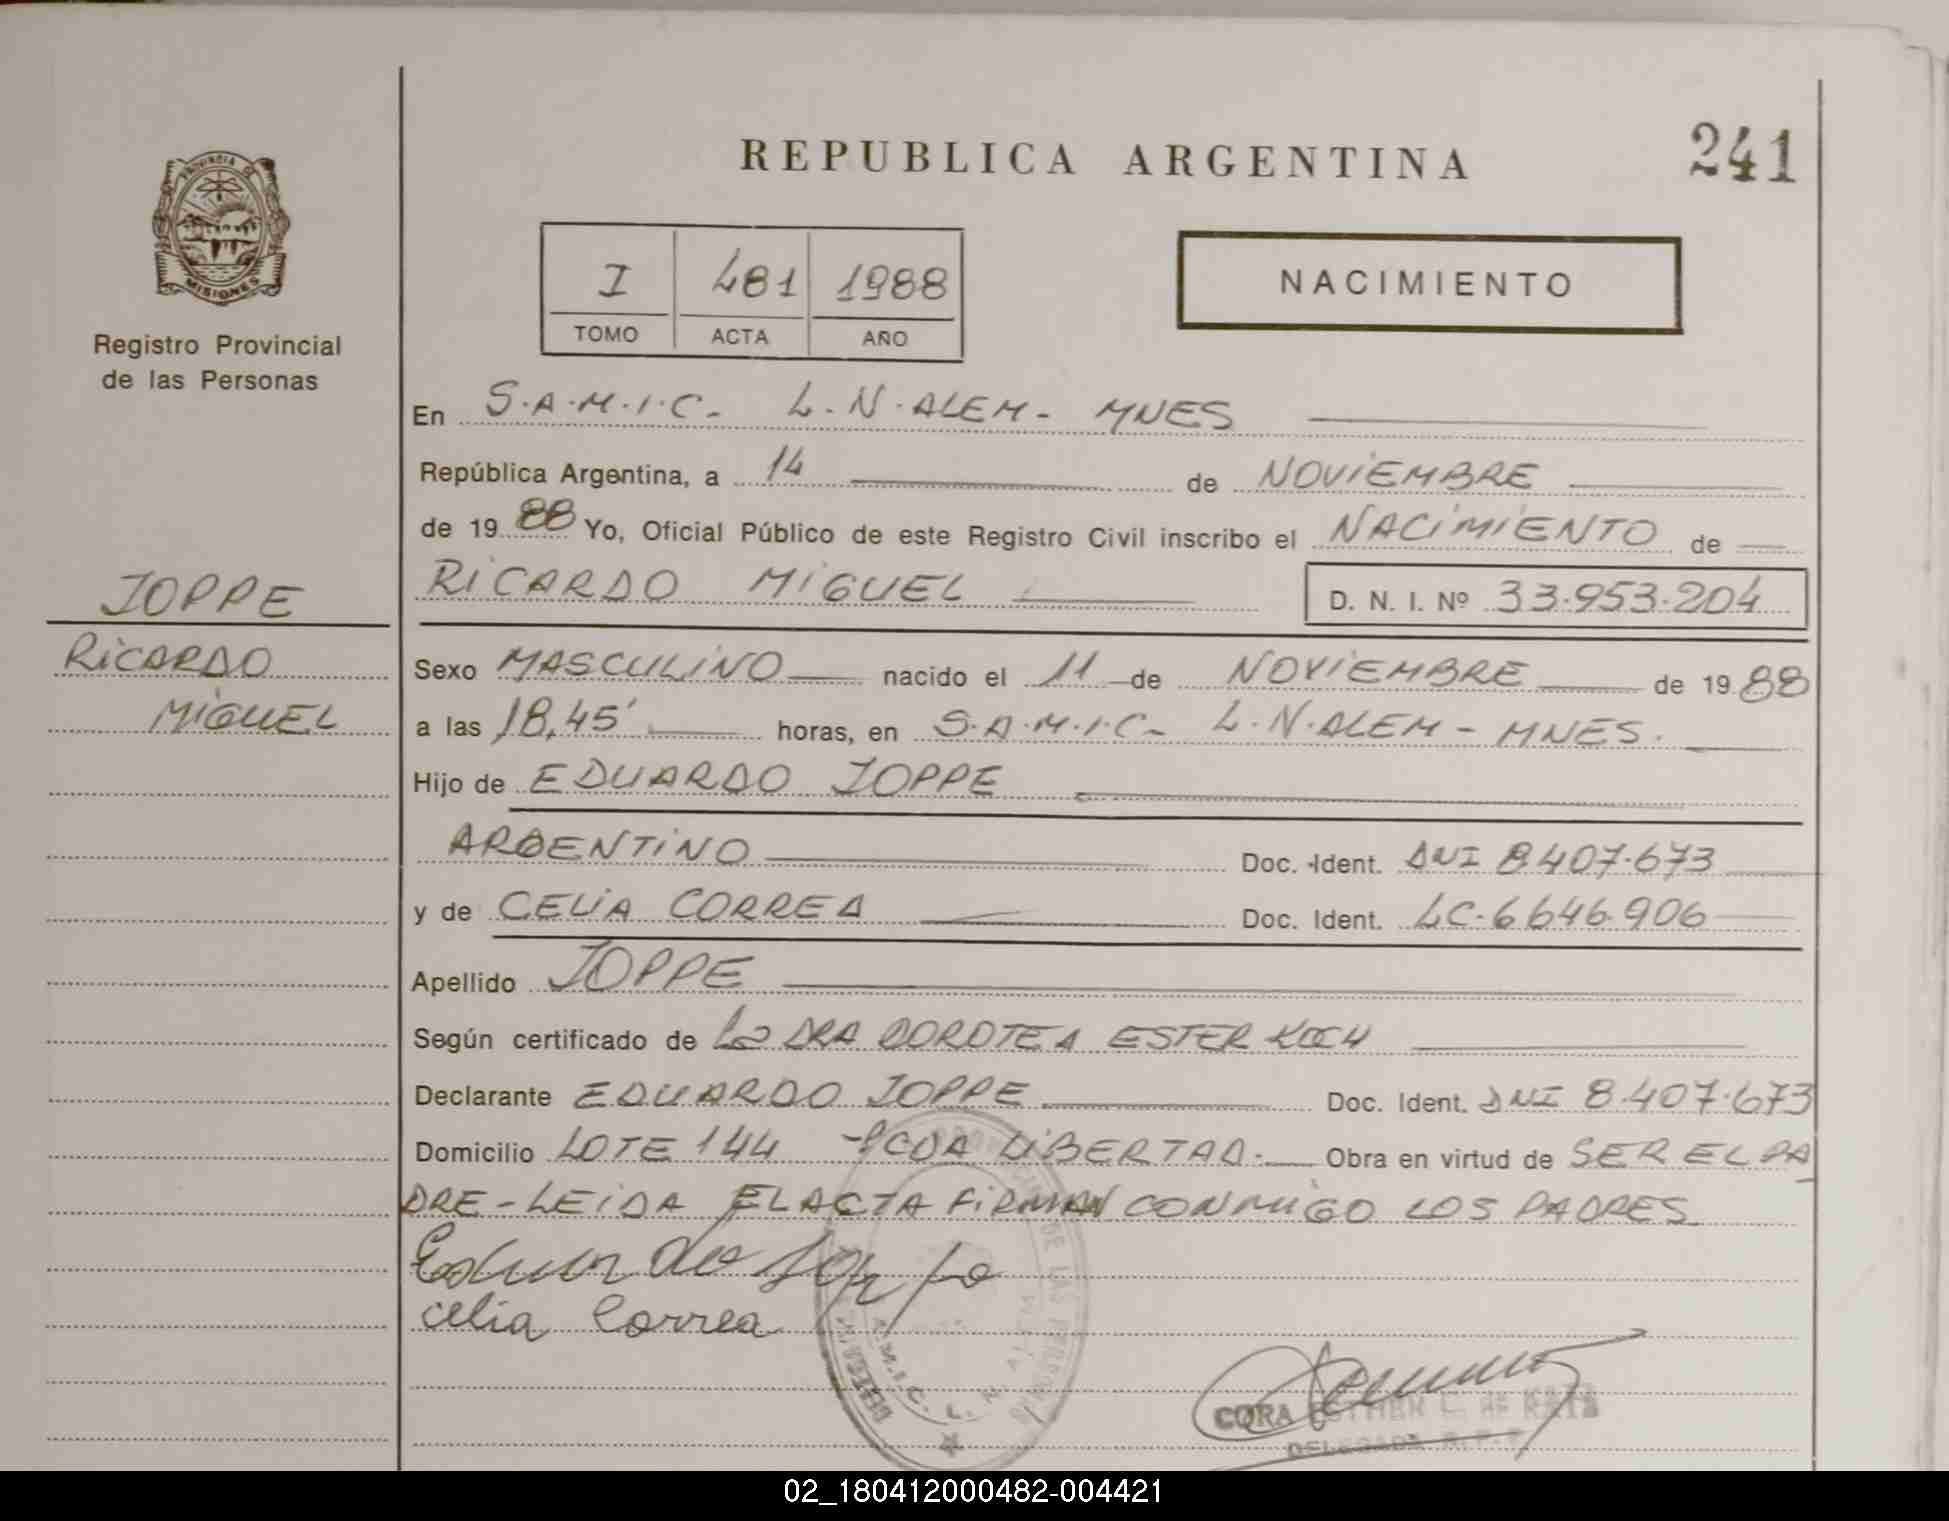 REPUBLICA ARGENTINA
241
PROVINCIA DE
MISIONES
Registro Provincial
de las Personas
I 481 1988
TOMO ACTA AÑO
NACIMIENTO
En S.A.M.I.C- L.N.ALEM- MNES
República Argentina, a 14 de NOVIEMBRE
de 19 88 Yo, Oficial Público de este Registro Civil inscribo el NACIMIENTO de
RICARDO MIGUEL D. N. I. Nº 33.953.204
JOPPE
RICARDO
MIGUEL
Sexo MASCULINO nacido el 11 de NOVIEMBRE de 19 88
a las 18,45' horas, en S.A.M.I.C- L.N.ALEM- MNES.
Hijo de EDUARDO JOPPE
ARGENTINO Doc. Ident. DNI 8.407.673
y de CELIA CORREA Doc. Ident. LC.6646.906
Apellido JOPPE
Según certificado de La DRA DOROTEA ESTER KOCH
Declarante EDUARDO JOPPE Doc. Ident. DNI 8.407.673
Domicilio LOTE 144 -PCDA LIBERTAD.- Obra en virtud de SER EL PA
DRE-LEIDA EL ACTA FIRMAN CONMIGO LOS PADRES
Eduardo Joppe
Celia Correa
DE LAS PERSONAS
S.A.M.I.C. L. N. ALEM
CORA ESTHER L. de
DELEGADA R.P.P.
02_180412000482-004421